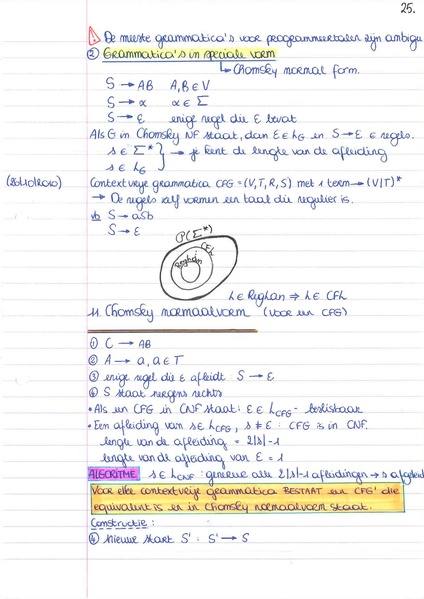 25.
De meeste grammatica's voor programmeertalen zijn ambigu
② Grammatica's in speciale vorm
↳ Chomsky normal form.
S → AB   A, B ∈ V
S → α   α ∈ Σ
S → ε   enige regel die ε bevat
Als G in Chomsky NF staat, dan ε ∈ L_G en S → ε ∈ regels.
s ∈ Σ* } → je kent de lengte van de afleiding
s ∈ L_G
Contextvrije grammatica CFG = (V,T,R,S) met 1 term → (V|T)*
→ De regels zelf vormen een taal die regulier is.
vb S → aSb
S → ε
P(Σ*)
CFL
Reglan
L ∈ Reglan ⇒ L ∈ CFL
Chomsky normaalvorm (voor een CFG)
① C → AB
② A → a, a ∈ T
③ enige regel die ε afleidt: S → ε
④ S staat nergens rechts
• Als een CFG in CNF staat: ε ∈ L_CFG - beslisbaar
• Een afleiding van s ∈ L_CFG, s ≠ ε : CFG is in CNF.
lengte van de afleiding = 2|s|-1
lengte van de afleiding van ε = 1
ALGORITME s ∈ L_CNF : genereer alle 2|s|-1 afleidingen → s afgeleid
Voor elke contextvrije grammatica BESTAAT een CFG' die
equivalent is en in Chomsky normaalvorm staat.
Constructie:
nieuwe start S' : S' → S